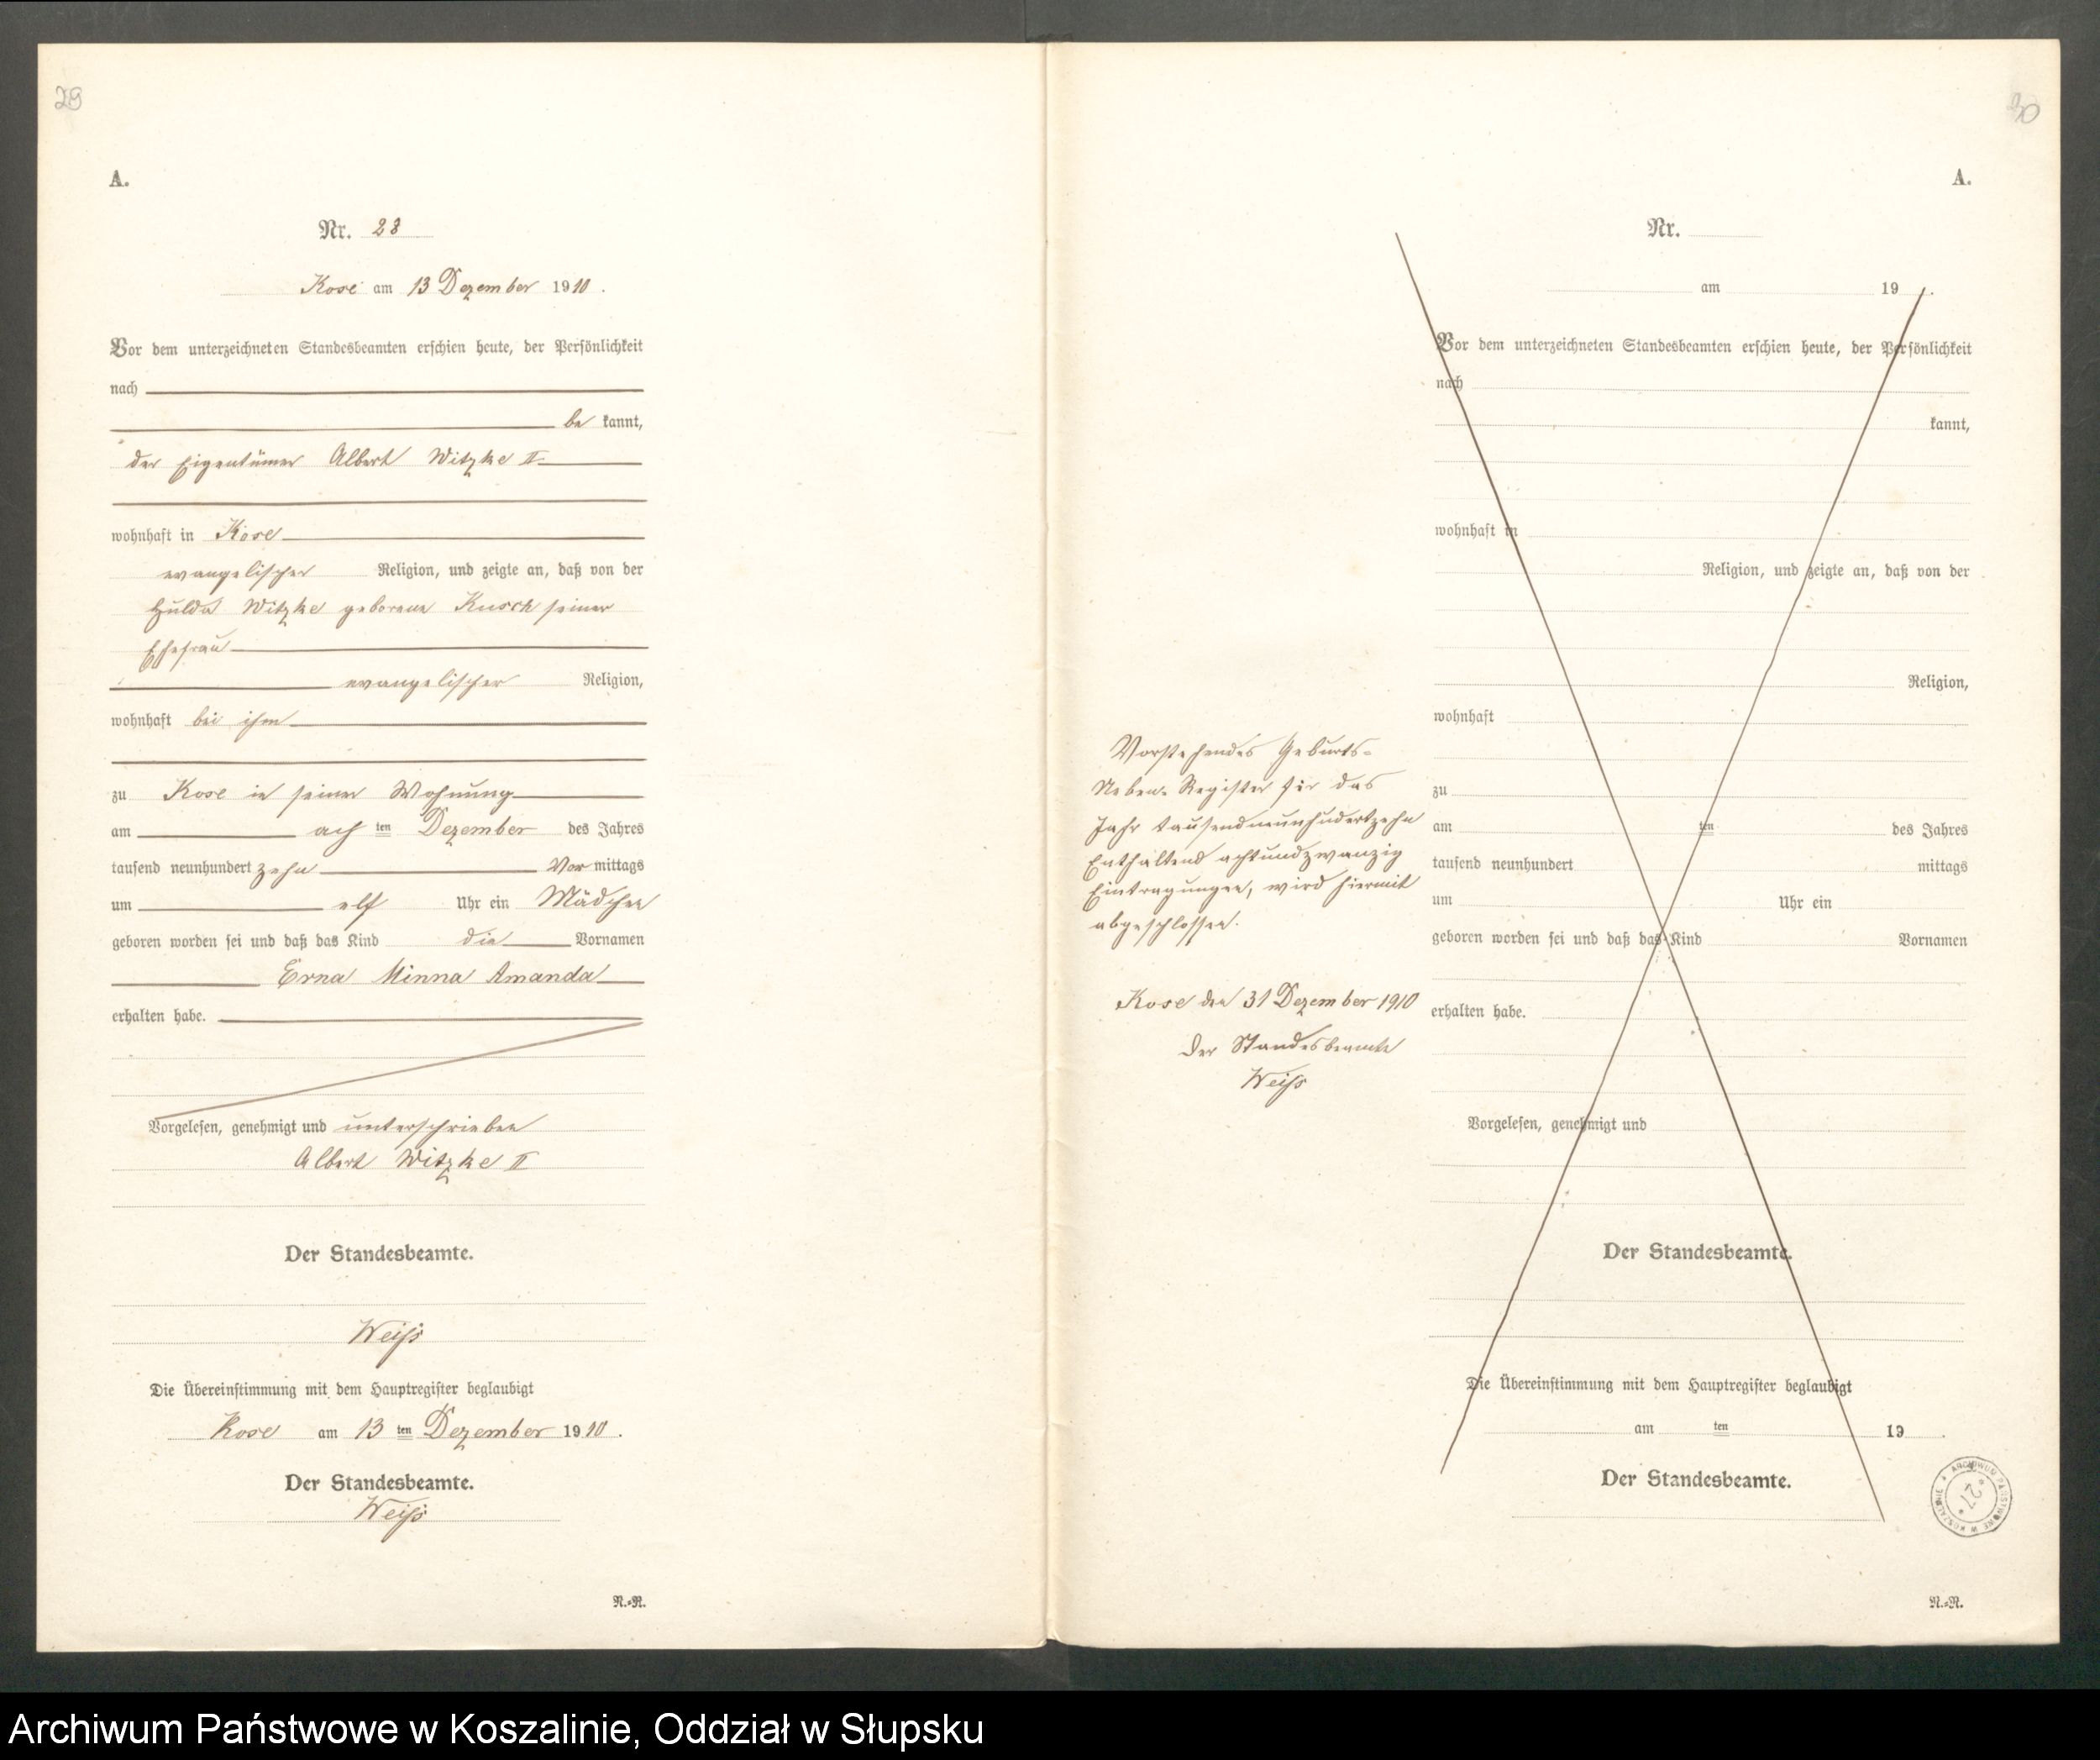 29
A.
Nr. 28
Kose am 13 Dezember 1910.
Vor dem unterzeichneten Standesbeamten erschien heute, der Persönlichkeit
nach
be kannt,
der Eigentümer Albert Witzke II
wohnhaft in Kose
evangelischer Religion, und zeigte an, daß von der
Hulda Witzke geborene Kusch seiner
Ehefrau
evangelischer Religion,
wohnhaft bei ihm
zu Kose in seiner Wohnung
am ach ten Dezember des Jahres
tausend neunhundert zehn Vor mittags
um elf Uhr ein Mädchen
geboren worden sei und daß das Kind die Vornamen
Erna Minna Amanda
erhalten habe.
Vorgelesen, genehmigt und unterschrieben
Albert Witzke II
Der Standesbeamte.
Weiß
Die Übereinstimmung mit dem Hauptregister beglaubigt
Kose am 13 ten Dezember 1910.
Der Standesbeamte.
Weiß
N.=R.
30
A.
Nr.
am 19 .
Vor dem unterzeichneten Standesbeamten erschien heute, der Persönlichkeit
nach
kannt,
wohnhaft in
Religion, und zeigte an, daß von der
Religion,
wohnhaft
zu
am ten des Jahres
tausend neunhundert mittags
um Uhr ein
geboren worden sei und daß das Kind Vornamen
erhalten habe.
Vorgelesen, genehmigt und
Der Standesbeamte.
Die Übereinstimmung mit dem Hauptregister beglaubigt
am ten 19 .
Der Standesbeamte.
N.=R.
Vorstehendes Geburts-
Neben-Register für das
Jahr tausendneunhundertzehn
Enthaltend achtundzwanzig
Eintragungen, wird hiermit
abgeschlossen.
Kose den 31 Dezember 1910
Der Standesbeamte
Weiß
ARCHIWUM PAŃSTWOWE W KOSZALINIE
27
Archiwum Państwowe w Koszalinie, Oddział w Słupsku